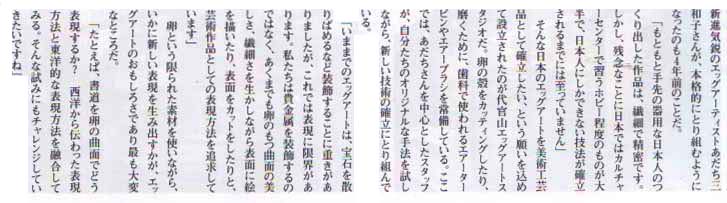 新進気鋭のエッグアーティストあだち三
和子さんが、本格的にとり組むように
なったのも4年前のことだ。
「もともと手先の器用な日本人のつ
くり出した作品は、繊細で精密です。
しかし、残念なことに日本ではカルチャ
ーセンターで習うホビー程度のものが大
半で、日本人にしかできない技法が確立
されるまでには至っていません」
そんな日本のエッグアートを美術工芸
品として確立したい、という願いを込め
て設立されたのが代官山エッグアートス
タジオだ。卵の殻をカッティングしたり、
磨くために、歯科で使われるエアーター
ビンやエアーブラシを常備している。ここ
では、あだちさんを中心としたスタッフ
が、自分たちのオリジナルな手法を試し
ながら、新しい技術の確立にとり組んで
いる。
「いままでのエッグアートは、宝石を散
りばめるなど装飾することに重きがあ
りましたが、これでは表現に限界があ
ります。私たちは貴金属を装飾するの
ではなく、あくまでも卵のもつ曲面の美
しさ、繊細さを生かしながら表面に絵
を描いたり、表面をカットをしたりと、
芸術作品としての表現方法を追求して
います」
卵という限られた素材を使いながら、
いかに新しい表現を生み出すかが、エッ
グアートのおもしろさであり最も大変
なところだ。
「たとえば、書道を卵の曲面でどう
表現するか? 西洋から伝わった表現
方法と東洋的な表現方法を融合して
みる。そんな試みにもチャレンジしてい
きたいですね」